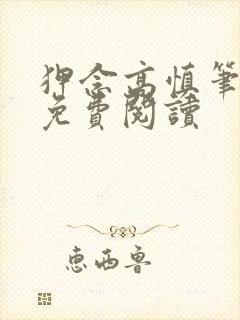 狎念高慎筆
免費閱讀
惠西魯